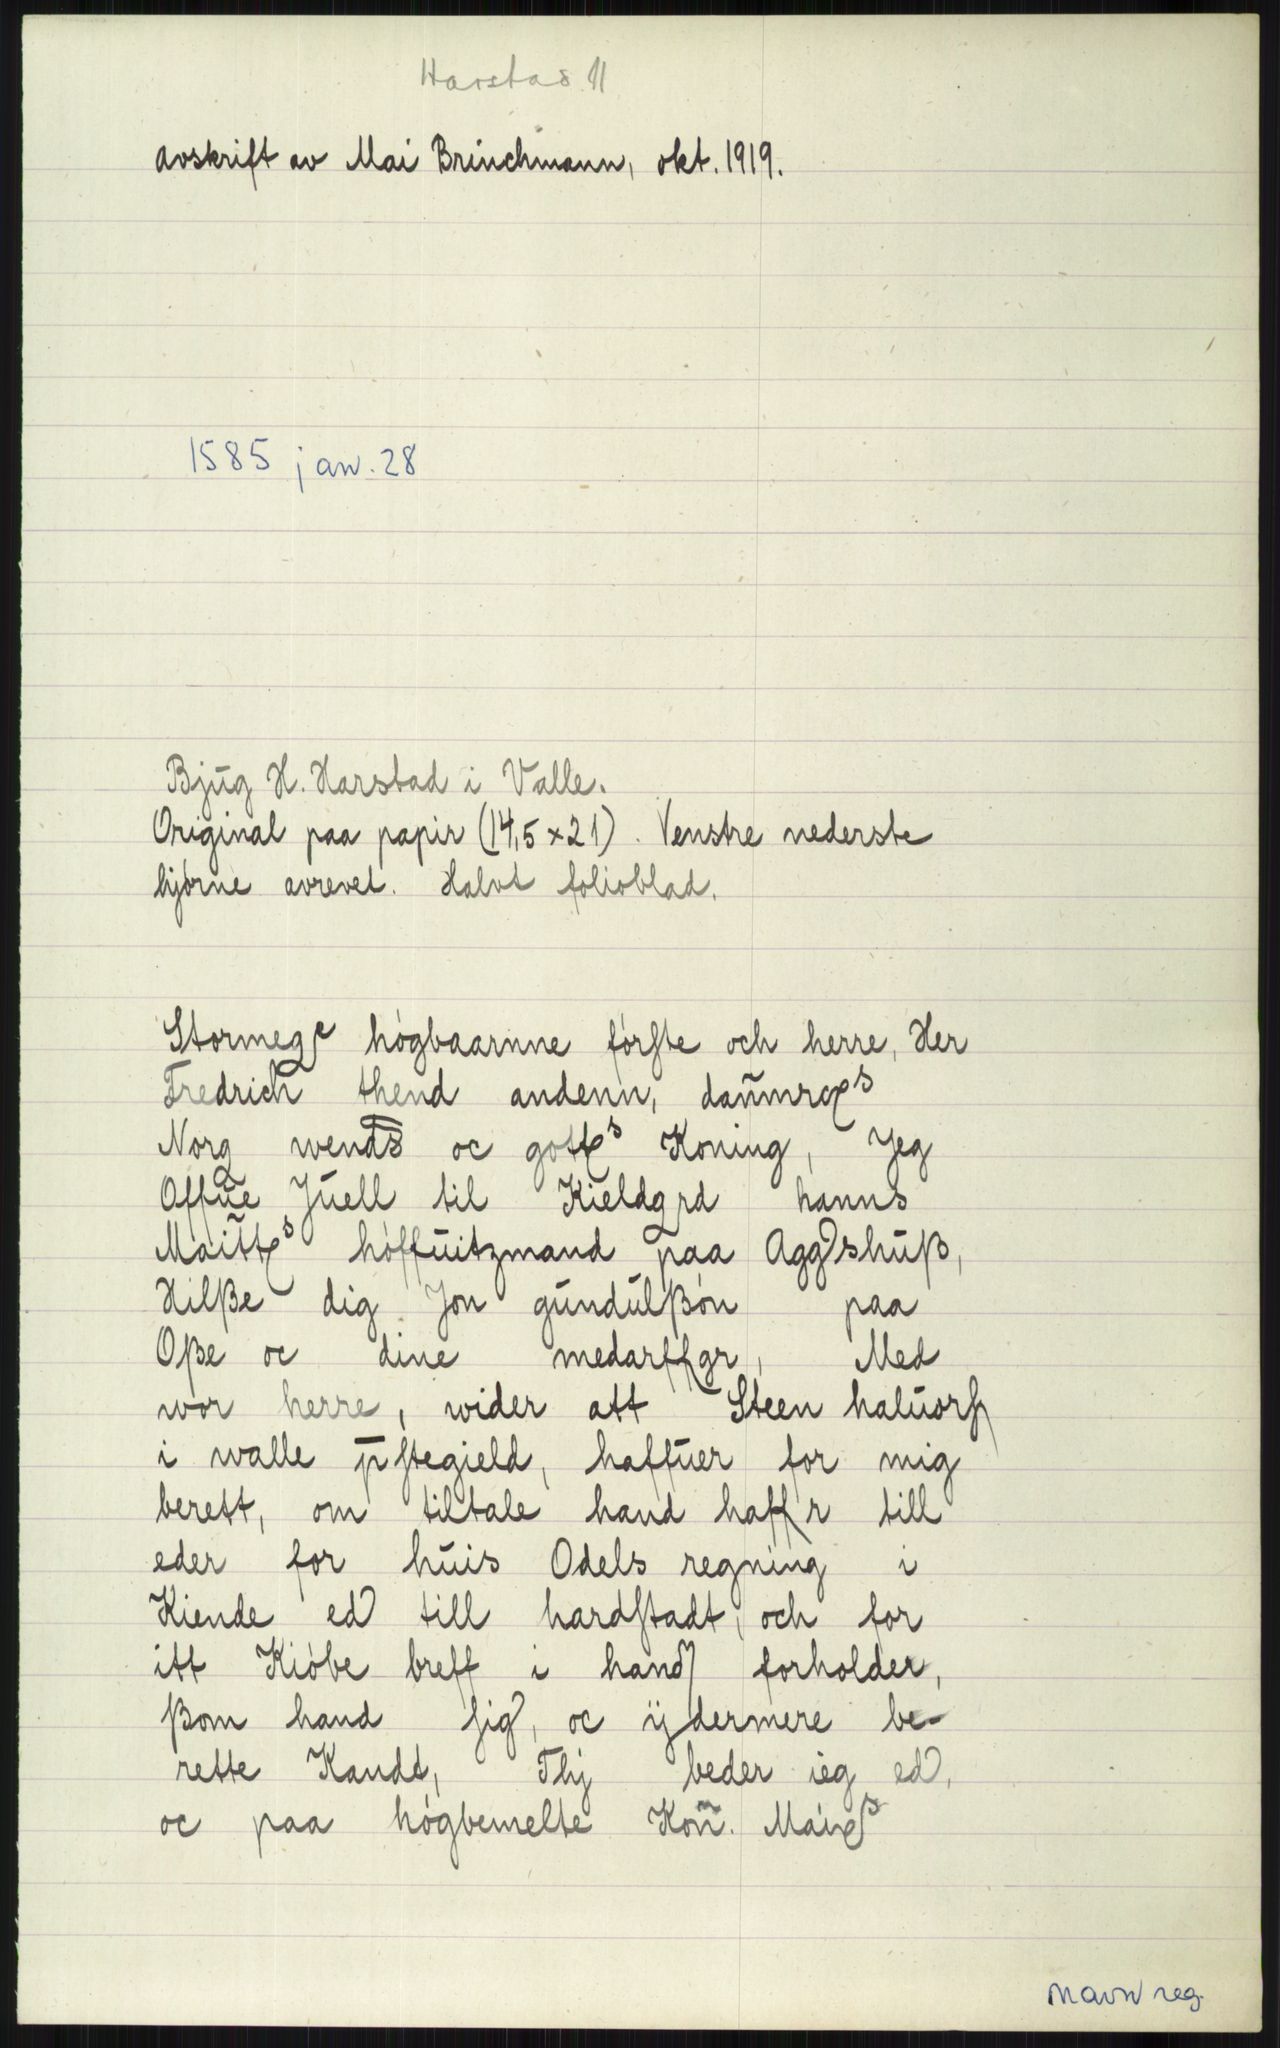 Harstad II
avskrift av Mai Brinchmann, okt. 1919.
1585 jan. 28
Bjug H. Harstad i Valle.
Original paa papir (14,5 × 21). Venstre nederste
hjørne avrevet. Halvt folioblad.
Stormegt høgbaarnne første och herre, Her
Fredrich thend andenn, danmrcs
Norg wends oc gotts Koning, Jeg
Offue Juell til Kieldgrd hanns
Maitts høffuitzmand paa Aggershuß,
Hilße dig Jon gundulßøn paa
Oße oc dine medarffgr, Med
wor herre, wider att Steen haluors
i walle pstegield, haffuer for mig
berett, om tiltale hand haffr till
eder for huis Odels regning i
Kiende ed till hardstadt, och for
itt Kiøbe breff i hand forholder,
ßom hand sig, oc ydermere be-
rette Kandt, Thj beder ieg ed,
oc paa høgbemelte Kon. Maits
navnreg.